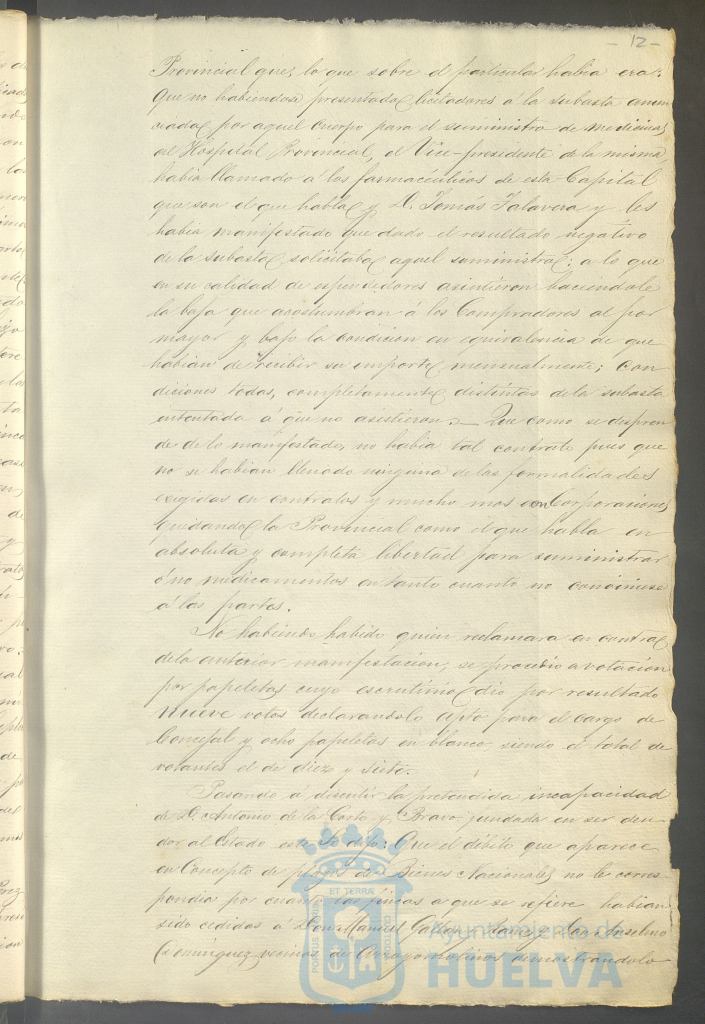 - 12 -
Provincial que, lo que sobre el particular habia era:
Que no habiendose presentado licitadores á la subasta anun
ciada por aquel Cuerpo para el suministro de medicinas
al Hospital Provincial, el Vice-presidente de la misma
habia llamado á los farmaceuticos de esta Capital
que son el que habla y D. Tomás Talavera y les
habia manifestado que dado el resultado negativo
de la subasta solicitaba aquel suministro; a lo que
en su calidad de espendedores asintieron haciendole
la baja que acostumbran á los Compradores al por
mayor y bajo la condicion en equivalencia de que
habian de recibir su importe mensualmente; Con
diciones todas, completamente distintas de la subasta
intentada á que no asistieron.- Que como se despren
de de lo manifestado, no habia tal contrato pues que
no se habian llenado ninguna de las formalidades
exigidas en contratos y mucho mas con Corporaciones
quedando la Provincial como el que habla en
absoluta y completa libertad para suministrar
ó no medicamentos en tanto cuanto no conviniese
á las partes.
No habiendo habido quien reclamara en contra
de la anterior manifestacion, se procedió a votacion
por papeletas cuyo escrutinio dió por resultado
nueve votos declarandolo apto para el cargo de
Concejal y ocho papeletas en blanco, siendo el total de
votantes el de diez y siete.
Pasando á discutir la pretendida incapacidad
de D. Antonio de la Corte y Bravo fundada en ser deu-
dor al Estado este Sr. dijo: Que el débito que aparece
en Concepto de plazos de Bienes Nacionales no le corres-
pondia por cuanto las fincas a que se refiere habian
sido cedidas á Don Manuel y Don Anselmo
Dominguez vecinos de Arroyomolinos demostrandolo
PORTUS MARIS
ET TERRÆ
CUSTODIA
Ayuntamiento de
HUELVA